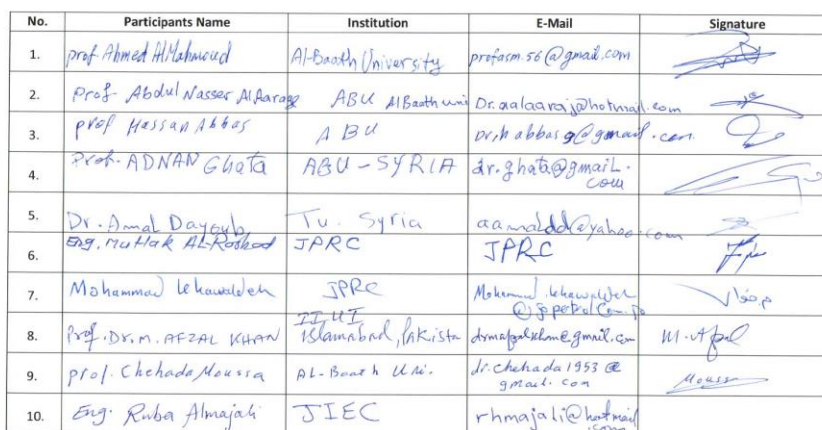 No. Participants Name Institution E-Mail Signature
1. prof Ahmed AlMahmoud Al-Baath University profasm.56@gmail.com
2. Prof. Abdul Nasser AlAaraj ABU AlBaath uni Dr.aalaaraj@hotmail.com
3. prof Hassan Abbas ABU
4. Prof. ADNAN Ghata ABU-SYRIA dr.ghata@gmail.
com
5. Dr. Amal Dayoub Tu. Syria aamaldd@yahoo.com
6. Eng. Mutlak JPRC JPRC
7. Mohammad JPRC Mohammad
IIUI
8. Prof. Dr. M. AFZAL KHAN Islamabad, Pakista M. Afzal
9. prof. Chehada Moussa AL-Baath Uni. dr.chehada1953@
gmail.com Moussa
10. Eng. Ruba Almajali JIEC rhmajali@hotmail
.com